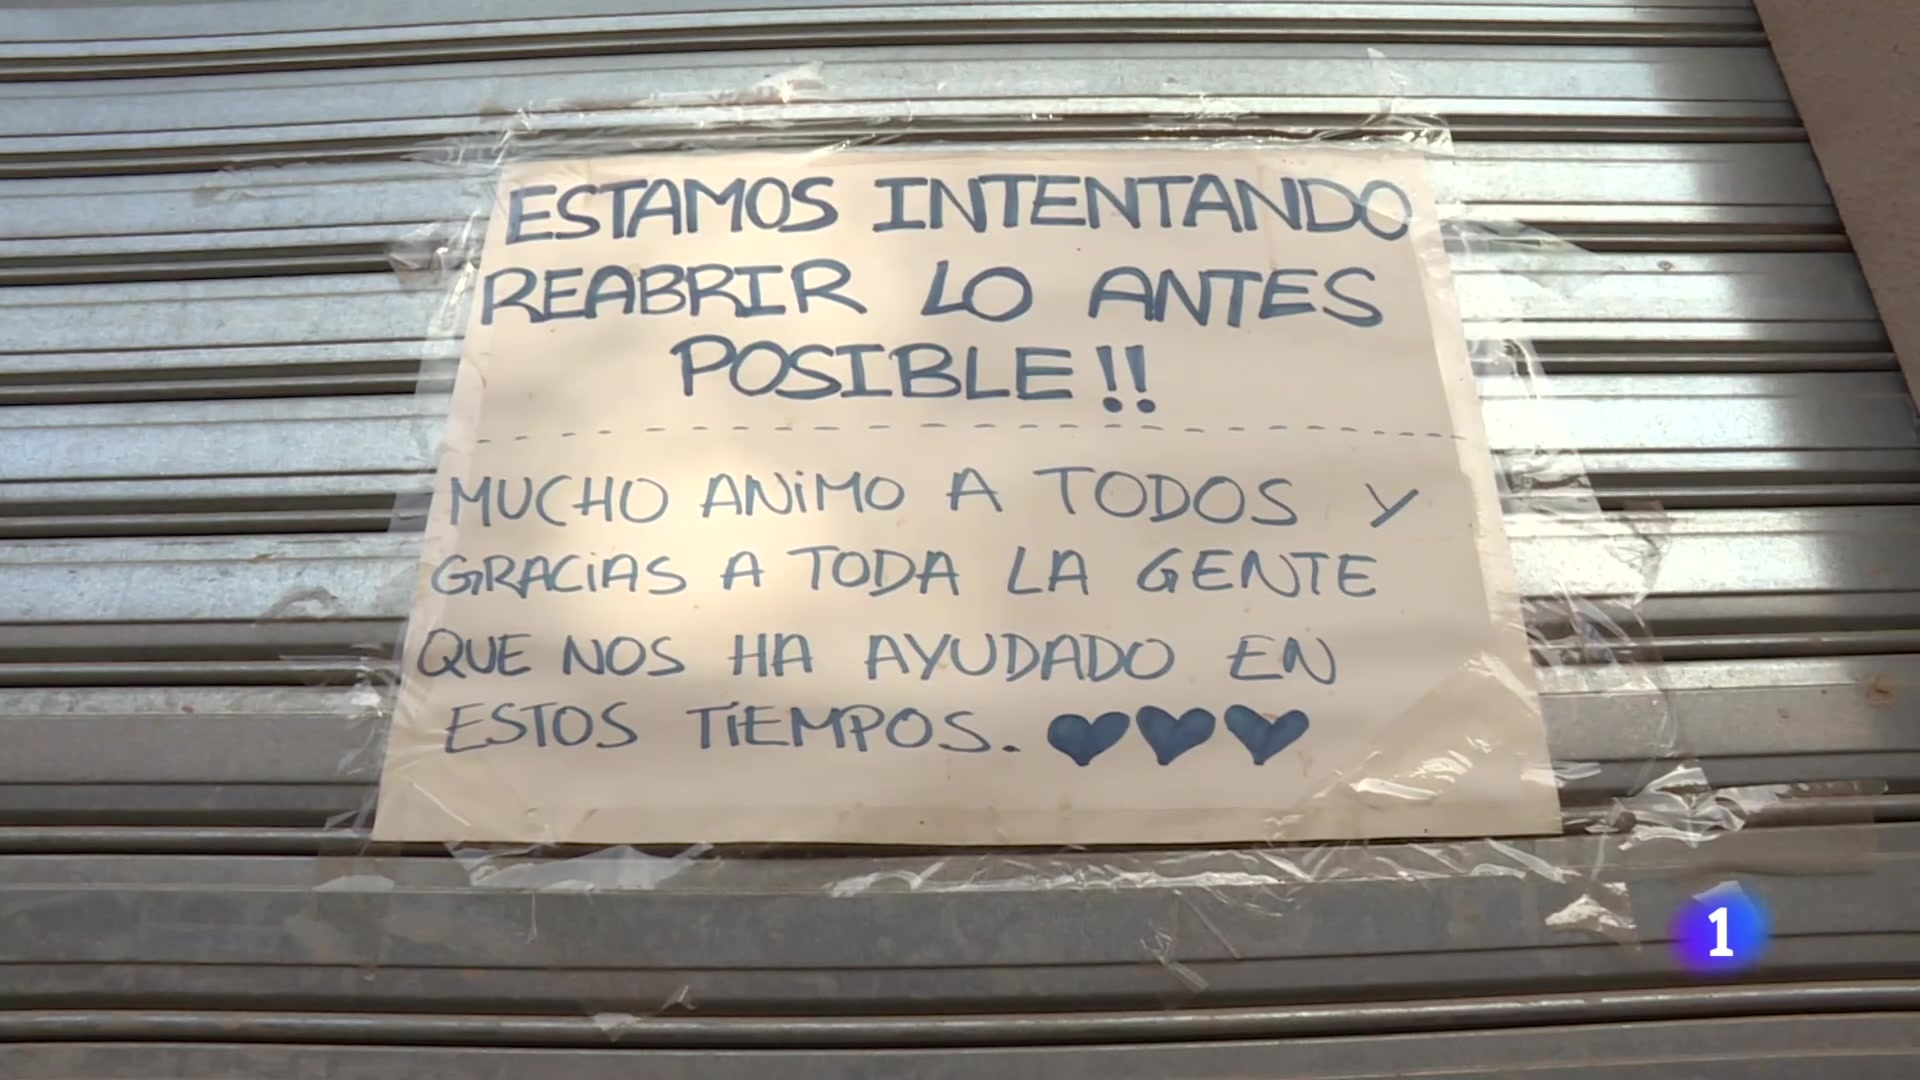 ESTAMOS INTENTANDO
REABRIR LO ANTES
POSIBLE!!
MUCHO ANIMO A TODOS Y
GRACIAS A TODA LA GENTE
QUE NOS HA AYUDADO EN
ESTOS TIEMPOS. ♥♥♥
1